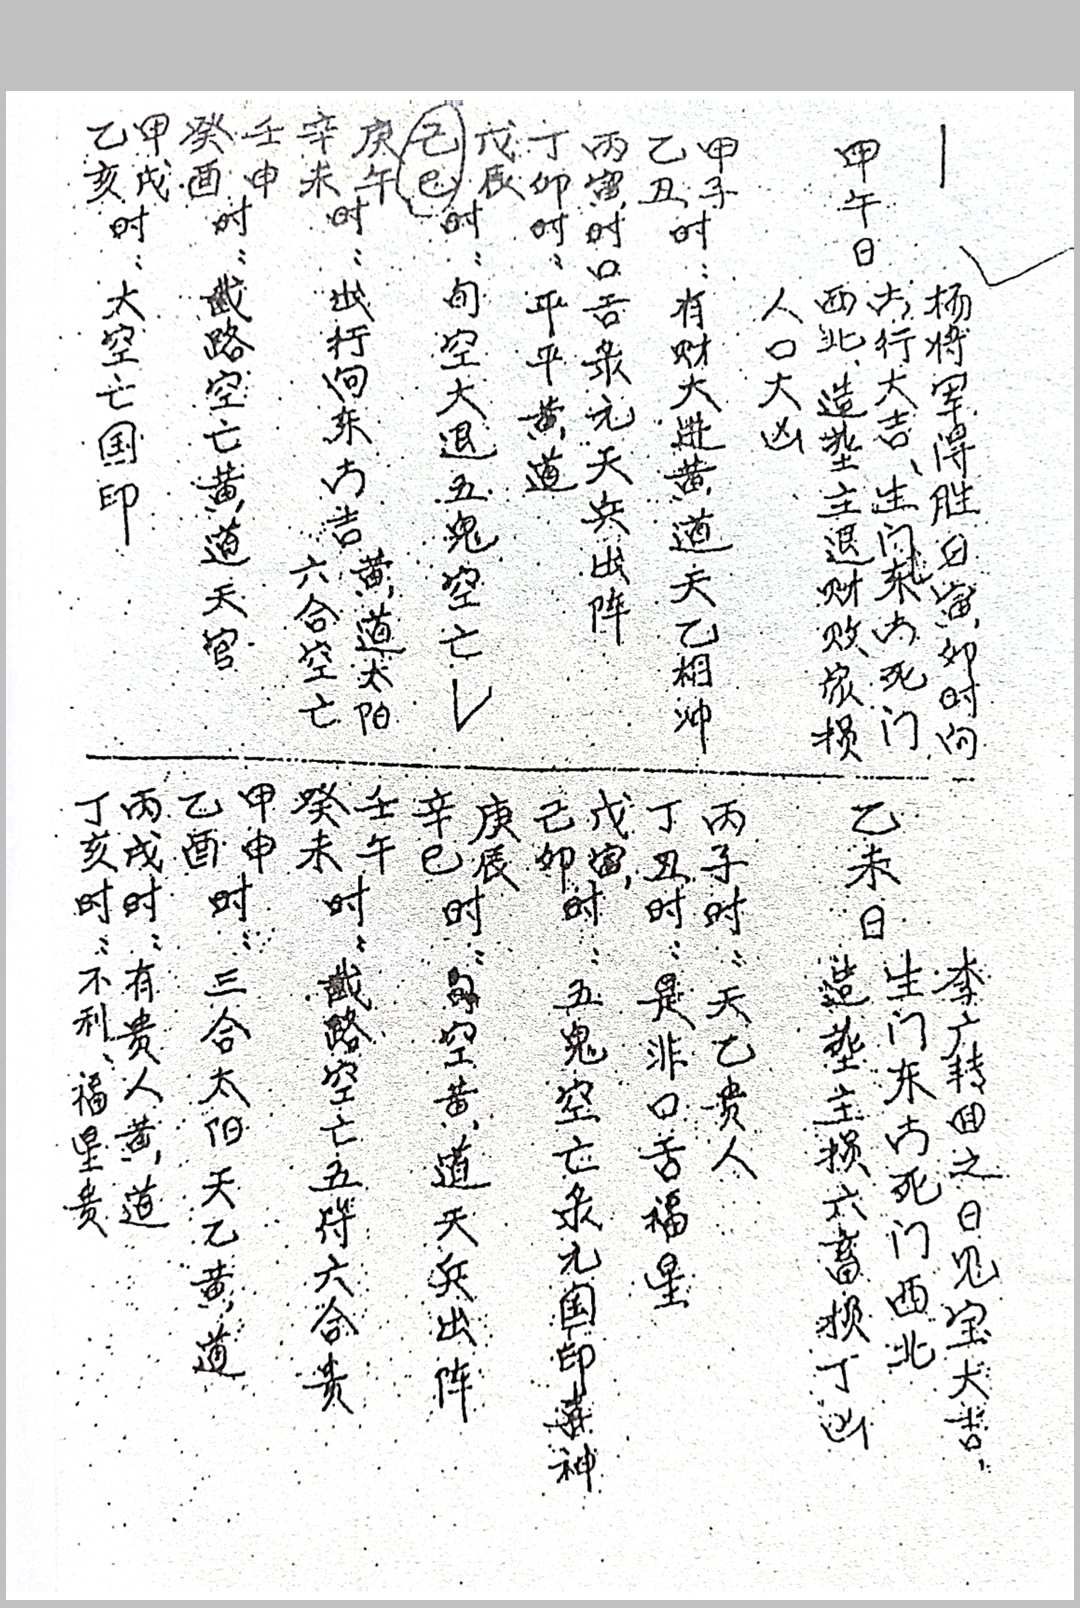 甲午日
杨将军得胜日寅卯时向
方行大吉、生门东方死门
西北、造塟主退财败家损
人口大凶
甲子
乙丑时：有财大进黄道天乙相冲
丙寅时口舌元天兵出阵
丁卯时：平平黄道
戊辰
己巳时：旬空大退五鬼空亡
庚午
辛未时：出行向东方吉黄道太阳
六合空亡
壬申
癸酉时：截路空亡黄道天官
甲戌
乙亥时：大空亡国印
乙未日
李广转回之日见宝大吉、
生门东方死门西北
造塟主损六畜损丁凶
丙子时：天乙贵人
丁丑时：是非口舌福星
戊寅
己卯时：五鬼空亡元国印喜神
庚辰
辛巳时：旬空黄道天兵出阵
壬午
癸未时：截路空亡五符六合贵
甲申
乙酉时：三合太阳天乙黄道
丙戌时：有贵人黄道
丁亥时：不利、福星贵